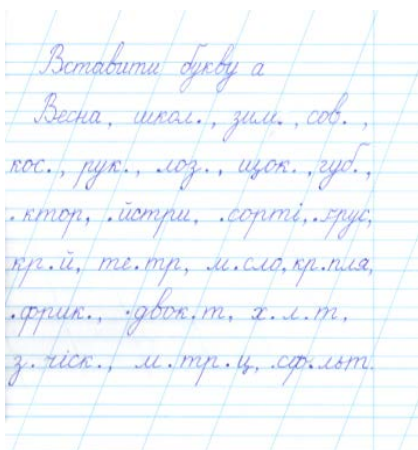 Вставити букву а
Весна, школ., зим., сов.,
кос., рук., лоз., щок., губ.,
.ктор, .йстри, .сорті, .грус,
кр.й, те.тр, м.сло, кр.пля,
.фрик., .двок.т, х.л.т,
з.чіск., м.тр.ц, .сф.льт.